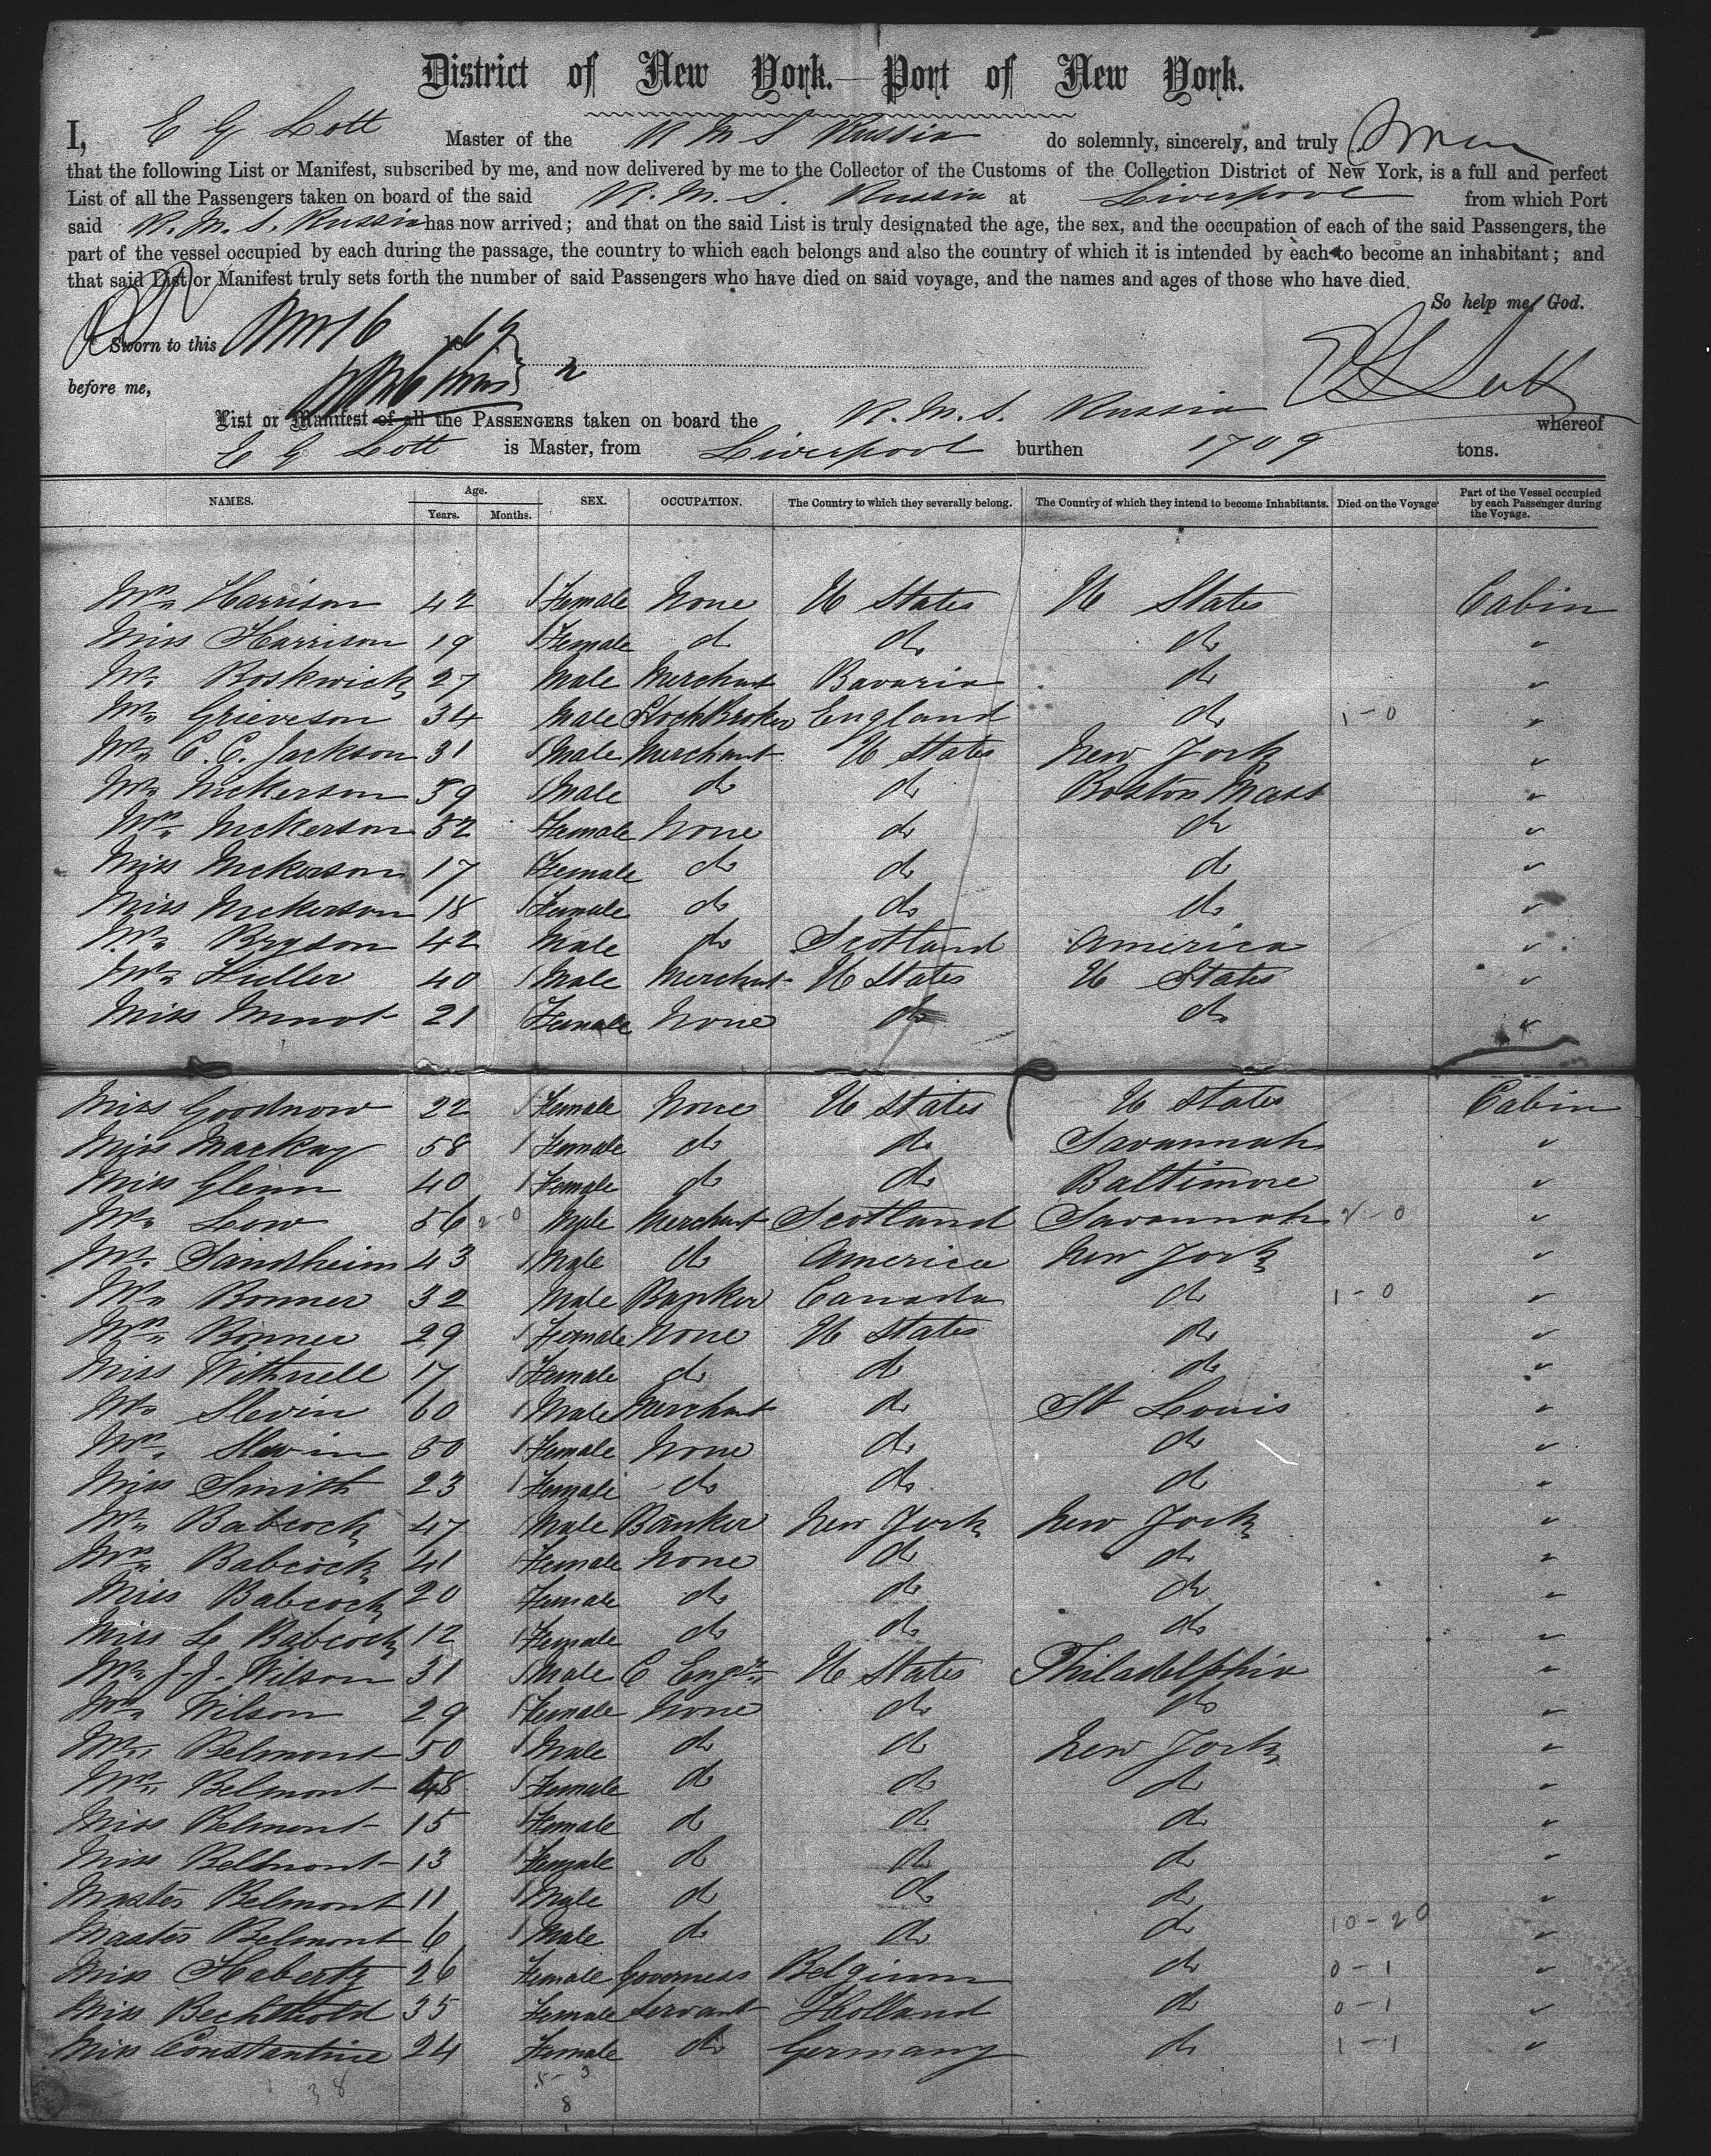 District of New York.—Port of New York.
I, E G Lott Master of the R M S Russia do solemnly, sincerely, and truly Swear
that the following List or Manifest, subscribed by me, and now delivered by me to the Collector of the Customs of the Collection District of New York, is a full and perfect
List of all the Passengers taken on board of the said R. M. S. Russia at Liverpool from which Port
said R. M. S. Russia has now arrived; and that on the said List is truly designated the age, the sex, and the occupation of each of the said Passengers, the
part of the vessel occupied by each during the passage, the country to which each belongs and also the country of which it is intended by each to become an inhabitant; and
that said List or Manifest truly sets forth the number of said Passengers who have died on said voyage, and the names and ages of those who have died.
So help me God.
Sworn to this 16 1869
before me, 2 E G Lott
List or Manifest of all the PASSENGERS taken on board the R. M. S. Russia whereof
E G Lott is Master, from Liverpool burthen 1709 tons.
NAMES. Age. Years. Months. SEX. OCCUPATION. The Country to which they severally belong. The Country of which they intend to become Inhabitants. Died on the Voyage Part of the Vessel occupied by each Passenger during the Voyage.
Mrs Harrison 42 Female None U States U States Cabin
Miss Harrison 19 Female do do do "
Mr Roskwick 27 Male Merchant Bavaria do "
Mr Grieveson 34 Male Stock Broker England do 1-0 "
Mr C. C. Jackson 31 Male Merchant U States New York "
Mr Nickerson 59 Male do do Boston Mass "
Mrs Nickerson 52 Female None do do "
Miss Nickerson 17 Female do do do "
Miss Nickerson 18 Female do do do "
Mr Bryson 42 Male do Scotland America "
Mr Huller 40 Male Merchant U States U States "
Miss Minot 21 Female None do do "
Miss Goodnow 22 Female None U States U States Cabin
Miss Mackay 58 Female do do Savannah "
Miss Glenn 40 Female do do Baltimore "
Mr Low 56 2-0 Male Merchant Scotland Savannah 2-0 "
Mr Sandheim 43 Male do America New York "
Mr Bonner 32 Male Banker Canada do 1-0 "
Mrs Bonner 29 Female None U States do "
Miss Withnell 17 Female do do do "
Mr Slevin 60 Male Merchant do St Louis "
Mrs Slevin 50 Female None do do "
Miss Smith 23 Female do do do "
Mr Babcock 47 Male Banker New York New York "
Mrs Babcock 41 Female None do do "
Miss Babcock 20 Female do do do "
Miss L Babcock 12 Female do do do "
Mr J. J. Wilson 31 Male C Engr U States Philadelphia "
Mrs Wilson 29 Female None do do "
Mr Belmont 50 Male do do New York "
Mrs Belmont 48 Female do do do "
Miss Belmont 15 Female do do do "
Miss Bellmont 13 Female do do do "
Master Belmont 11 Male do do do "
Master Belmont 6 Male do do do 10-20 "
Miss Habertz 26 Female Governess Belgium do 0-1 "
Miss Bechthold 35 Female Servant Holland do 0-1 "
Miss Constantine 24 Female do Germany do 1-1 "
38 5-3
8